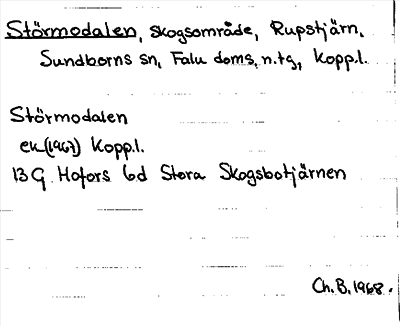 Störmodalen, skogsområde, Rupstjärn,
Sundborns sn, Falu doms. n. tg, Kopp.l.
Störmodalen
ek (1967) Kopp.l.
13 G Hofors 6d Stora Skogsbotjärnen
Ch. B. 1968.